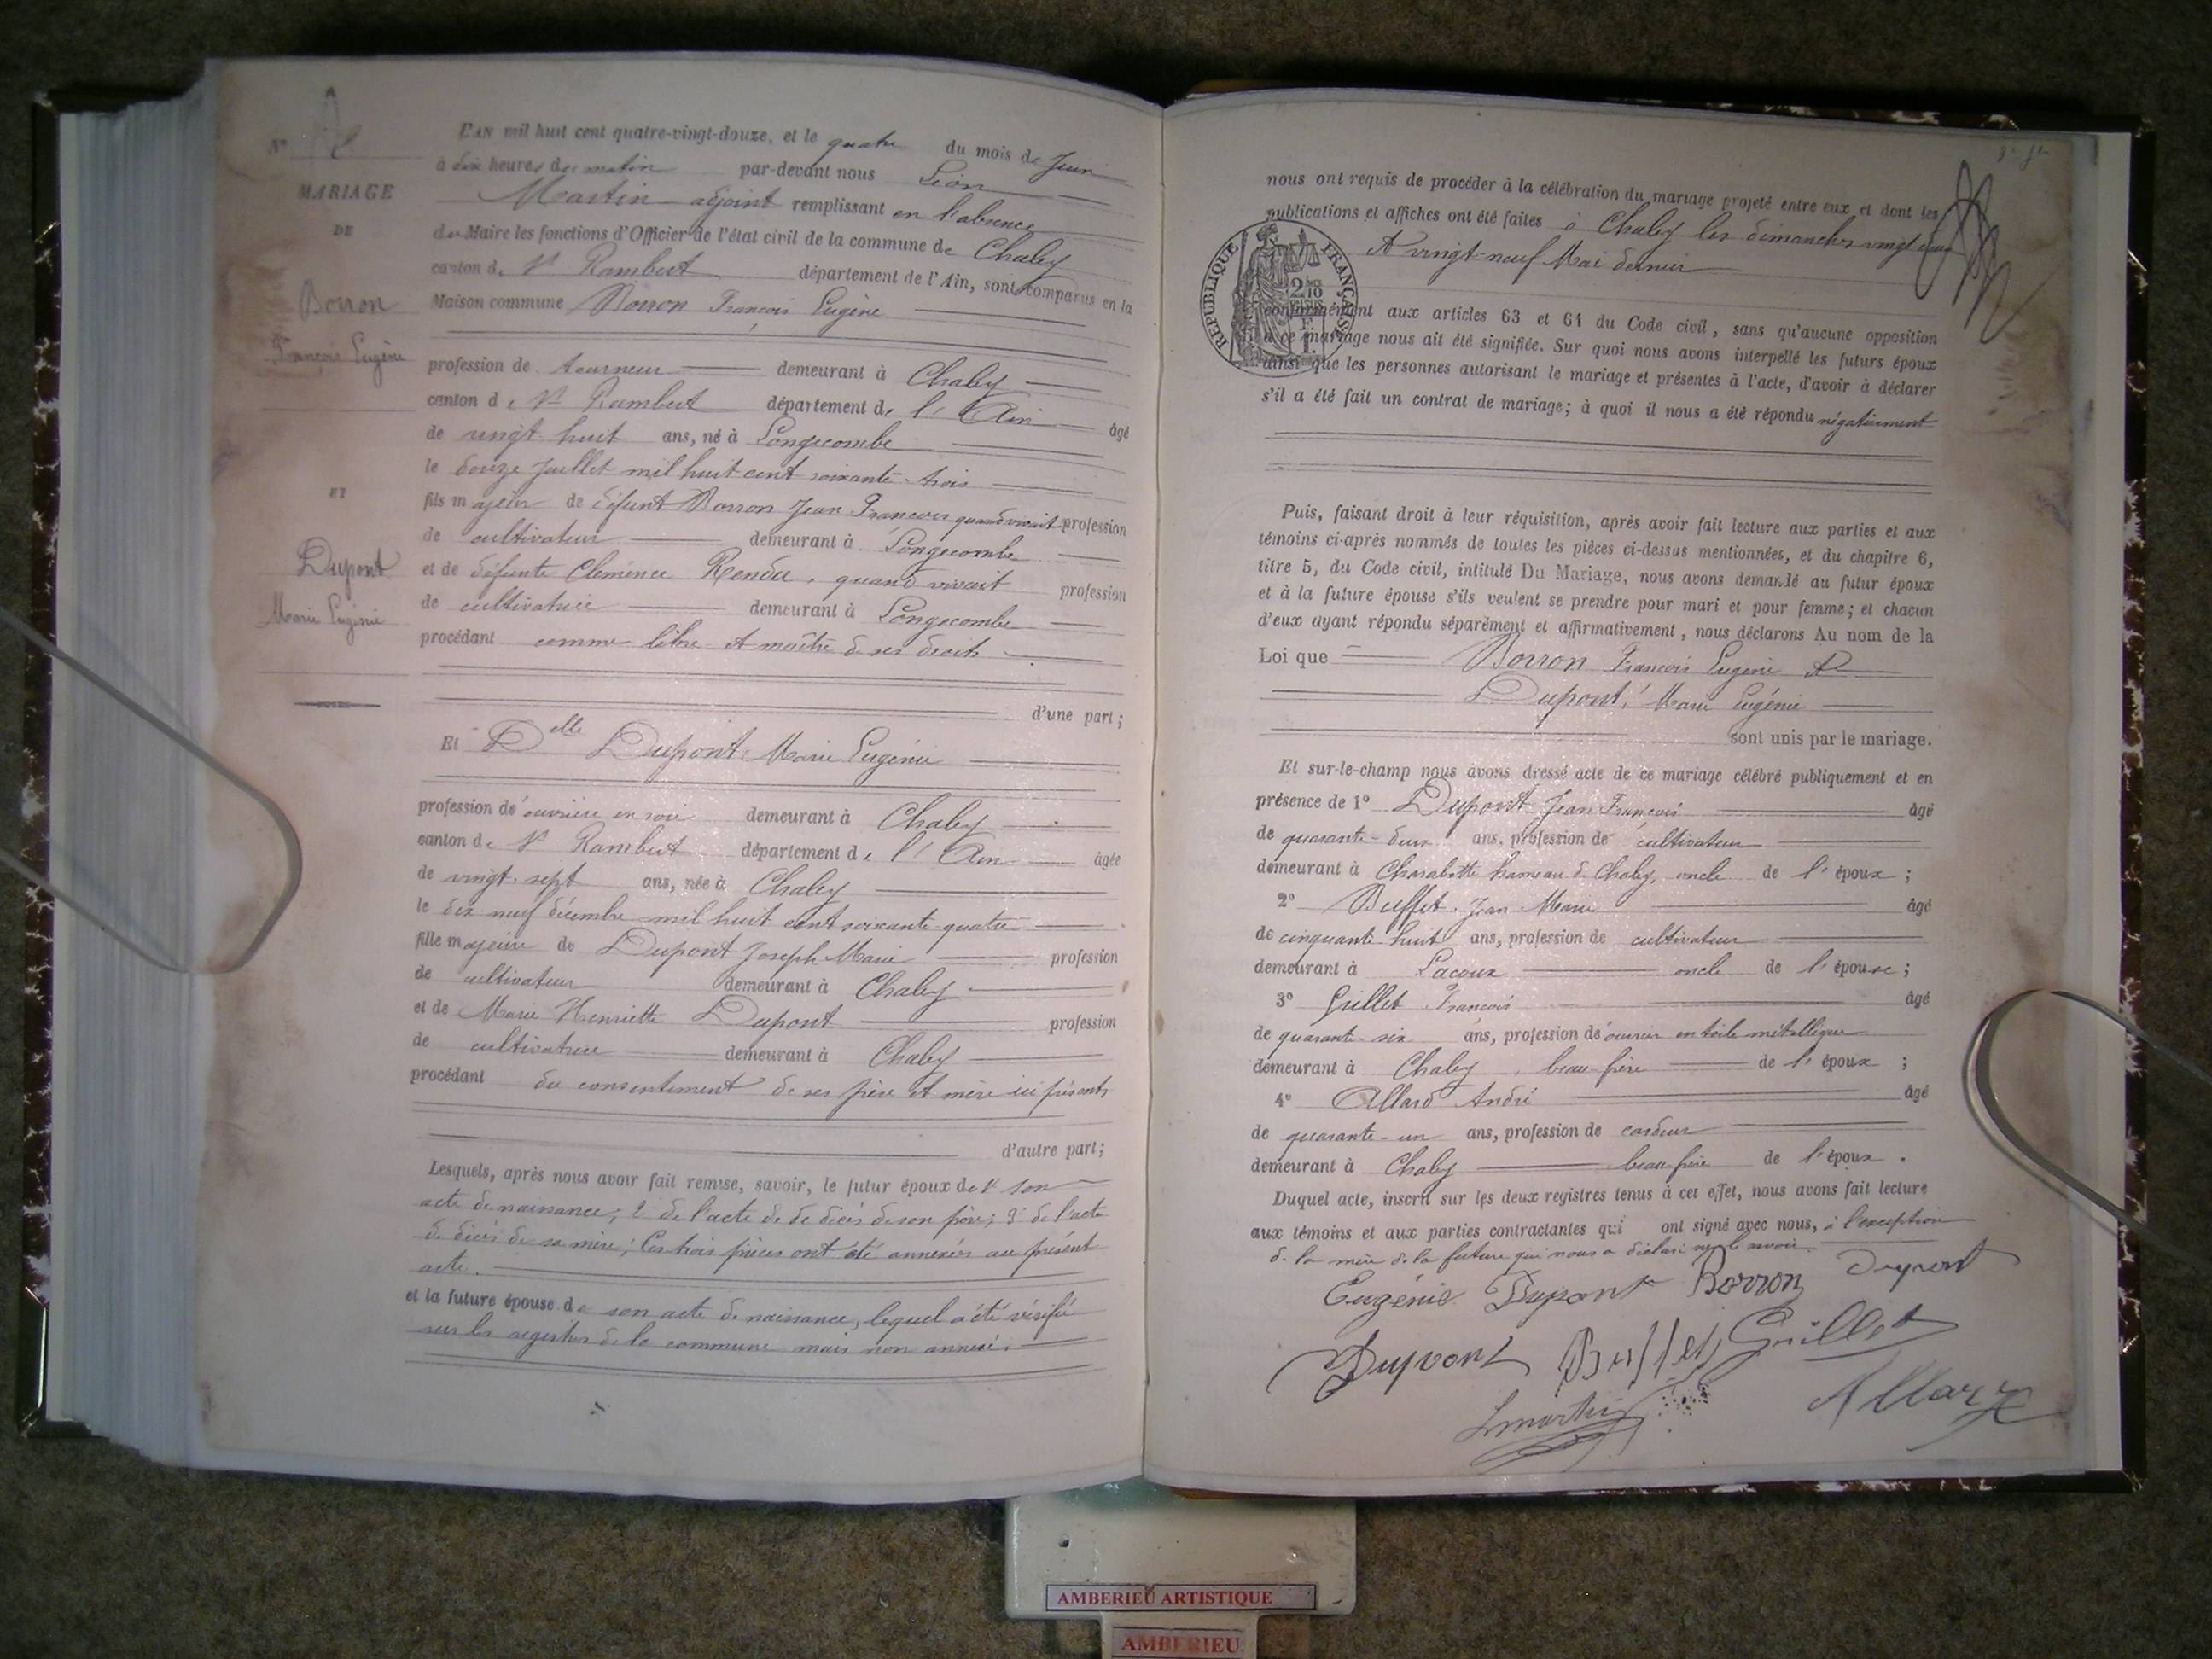 N°
MARIAGE
DE
Borron
François Eugène
ET
Dupont
Marie Eugénie
L'AN mil huit cent quatre-vingt-douze, et le quatre du mois de Juin
à dix heures du matin par-devant nous Léon
Martin adjoint remplissant en l'absence
du Maire les fonctions d'Officier de l'état civil de la commune de Chaley
canton de St Rambert département de l'Ain, sont comparus en la
Maison commune Borron François Eugène
profession de tourneur demeurant à Chaley
canton de St Rambert département de l'Ain âgé
de vingt huit ans, né à Longecombe
le douze Juillet mil huit cent soixante-trois
fils majeur de défunt Borron Jean François quand vivait profession
de cultivateur demeurant à Longecombe
et de défunte Clémence Rendu, quand vivait profession
de cultivatrice demeurant à Longecombe
procédant comme libre et maître de ses droits
d'une part;
Et Delle Dupont Marie Eugénie
profession d'ouvrière en soie demeurant à Chaley
canton de St Rambert département de l'Ain âgée
de vingt-sept ans, née à Chaley
le dix neuf décembre mil huit cent soixante-quatre
fille majeure de Dupont Joseph Marie profession
de cultivateur demeurant à Chaley
et de Marie Henriette Dupont profession
de cultivatrice demeurant à Chaley
procédant du consentement de ses père et mère ici présents
d'autre part;
Lesquels, après nous avoir fait remise, savoir, le futur époux de 1° son
acte de naissance; 2° de l'acte de de décès de son père; 3° de l'acte
de décès de sa mère; Ces trois pièces ont été annexées au présent
acte.
et la future épouse de son acte de naissance, lequel a été vérifié
sur les registres de la commune mais non annexé.
nous ont requis de procéder à la célébration du mariage projeté entre eux et dont les
publications et affiches ont été faites à Chaley les dimanches vingt deux
et vingt-neuf Mai dernier
REPUBLIQUE FRANÇAISE
conformément aux articles 63 et 64 du Code civil, sans qu'aucune opposition
à ce mariage nous ait été signifiée. Sur quoi nous avons interpellé les futurs époux
ainsi que les personnes autorisant le mariage et présentes à l'acte, d'avoir à déclarer
s'il a été fait un contrat de mariage; à quoi il nous a été répondu négativement
Puis, faisant droit à leur réquisition, après avoir fait lecture aux parties et aux
témoins ci-après nommés de toutes les pièces ci-dessus mentionnées, et du chapitre 6,
titre 5, du Code civil, intitulé Du Mariage, nous avons demandé au futur époux
et à la future épouse s'ils veulent se prendre pour mari et pour femme; et chacun
d'eux ayant répondu séparément et affirmativement, nous déclarons Au nom de la
Loi que Borron François Eugène et
Dupont, Marie Eugénie
sont unis par le mariage.
Et sur-le-champ nous avons dressé acte de ce mariage célébré publiquement et en
présence de 1° Dupont Jean François âgé
de quarante-deux ans, profession de cultivateur
demeurant à Charabotte hameau de Chaley, oncle de l'époux;
2° Buffet Jean Marie âgé
de cinquante-huit ans, profession de cultivateur
demeurant à Lacoux oncle de l'épouse;
3° Grillet François âgé
de quarante-six ans, profession d'ouvrier en toile métallique
demeurant à Chaley, beau-frère de l'époux;
4° Allard André âgé
de quarante-un ans, profession de cardeur
demeurant à Chaley beau-frère de l'époux.
Duquel acte, inscrit sur les deux registres tenus à cet effet, nous avons fait lecture
aux témoins et aux parties contractantes qui ont signé avec nous, à l'exception
de la mère de la future qui nous a déclaré ne le savoir.
Eugénie Dupont Borron Dupont
Dupont Buffet Grillet
Lmartin Allard
AMBERIEU ARTISTIQUE
AMBERIEU